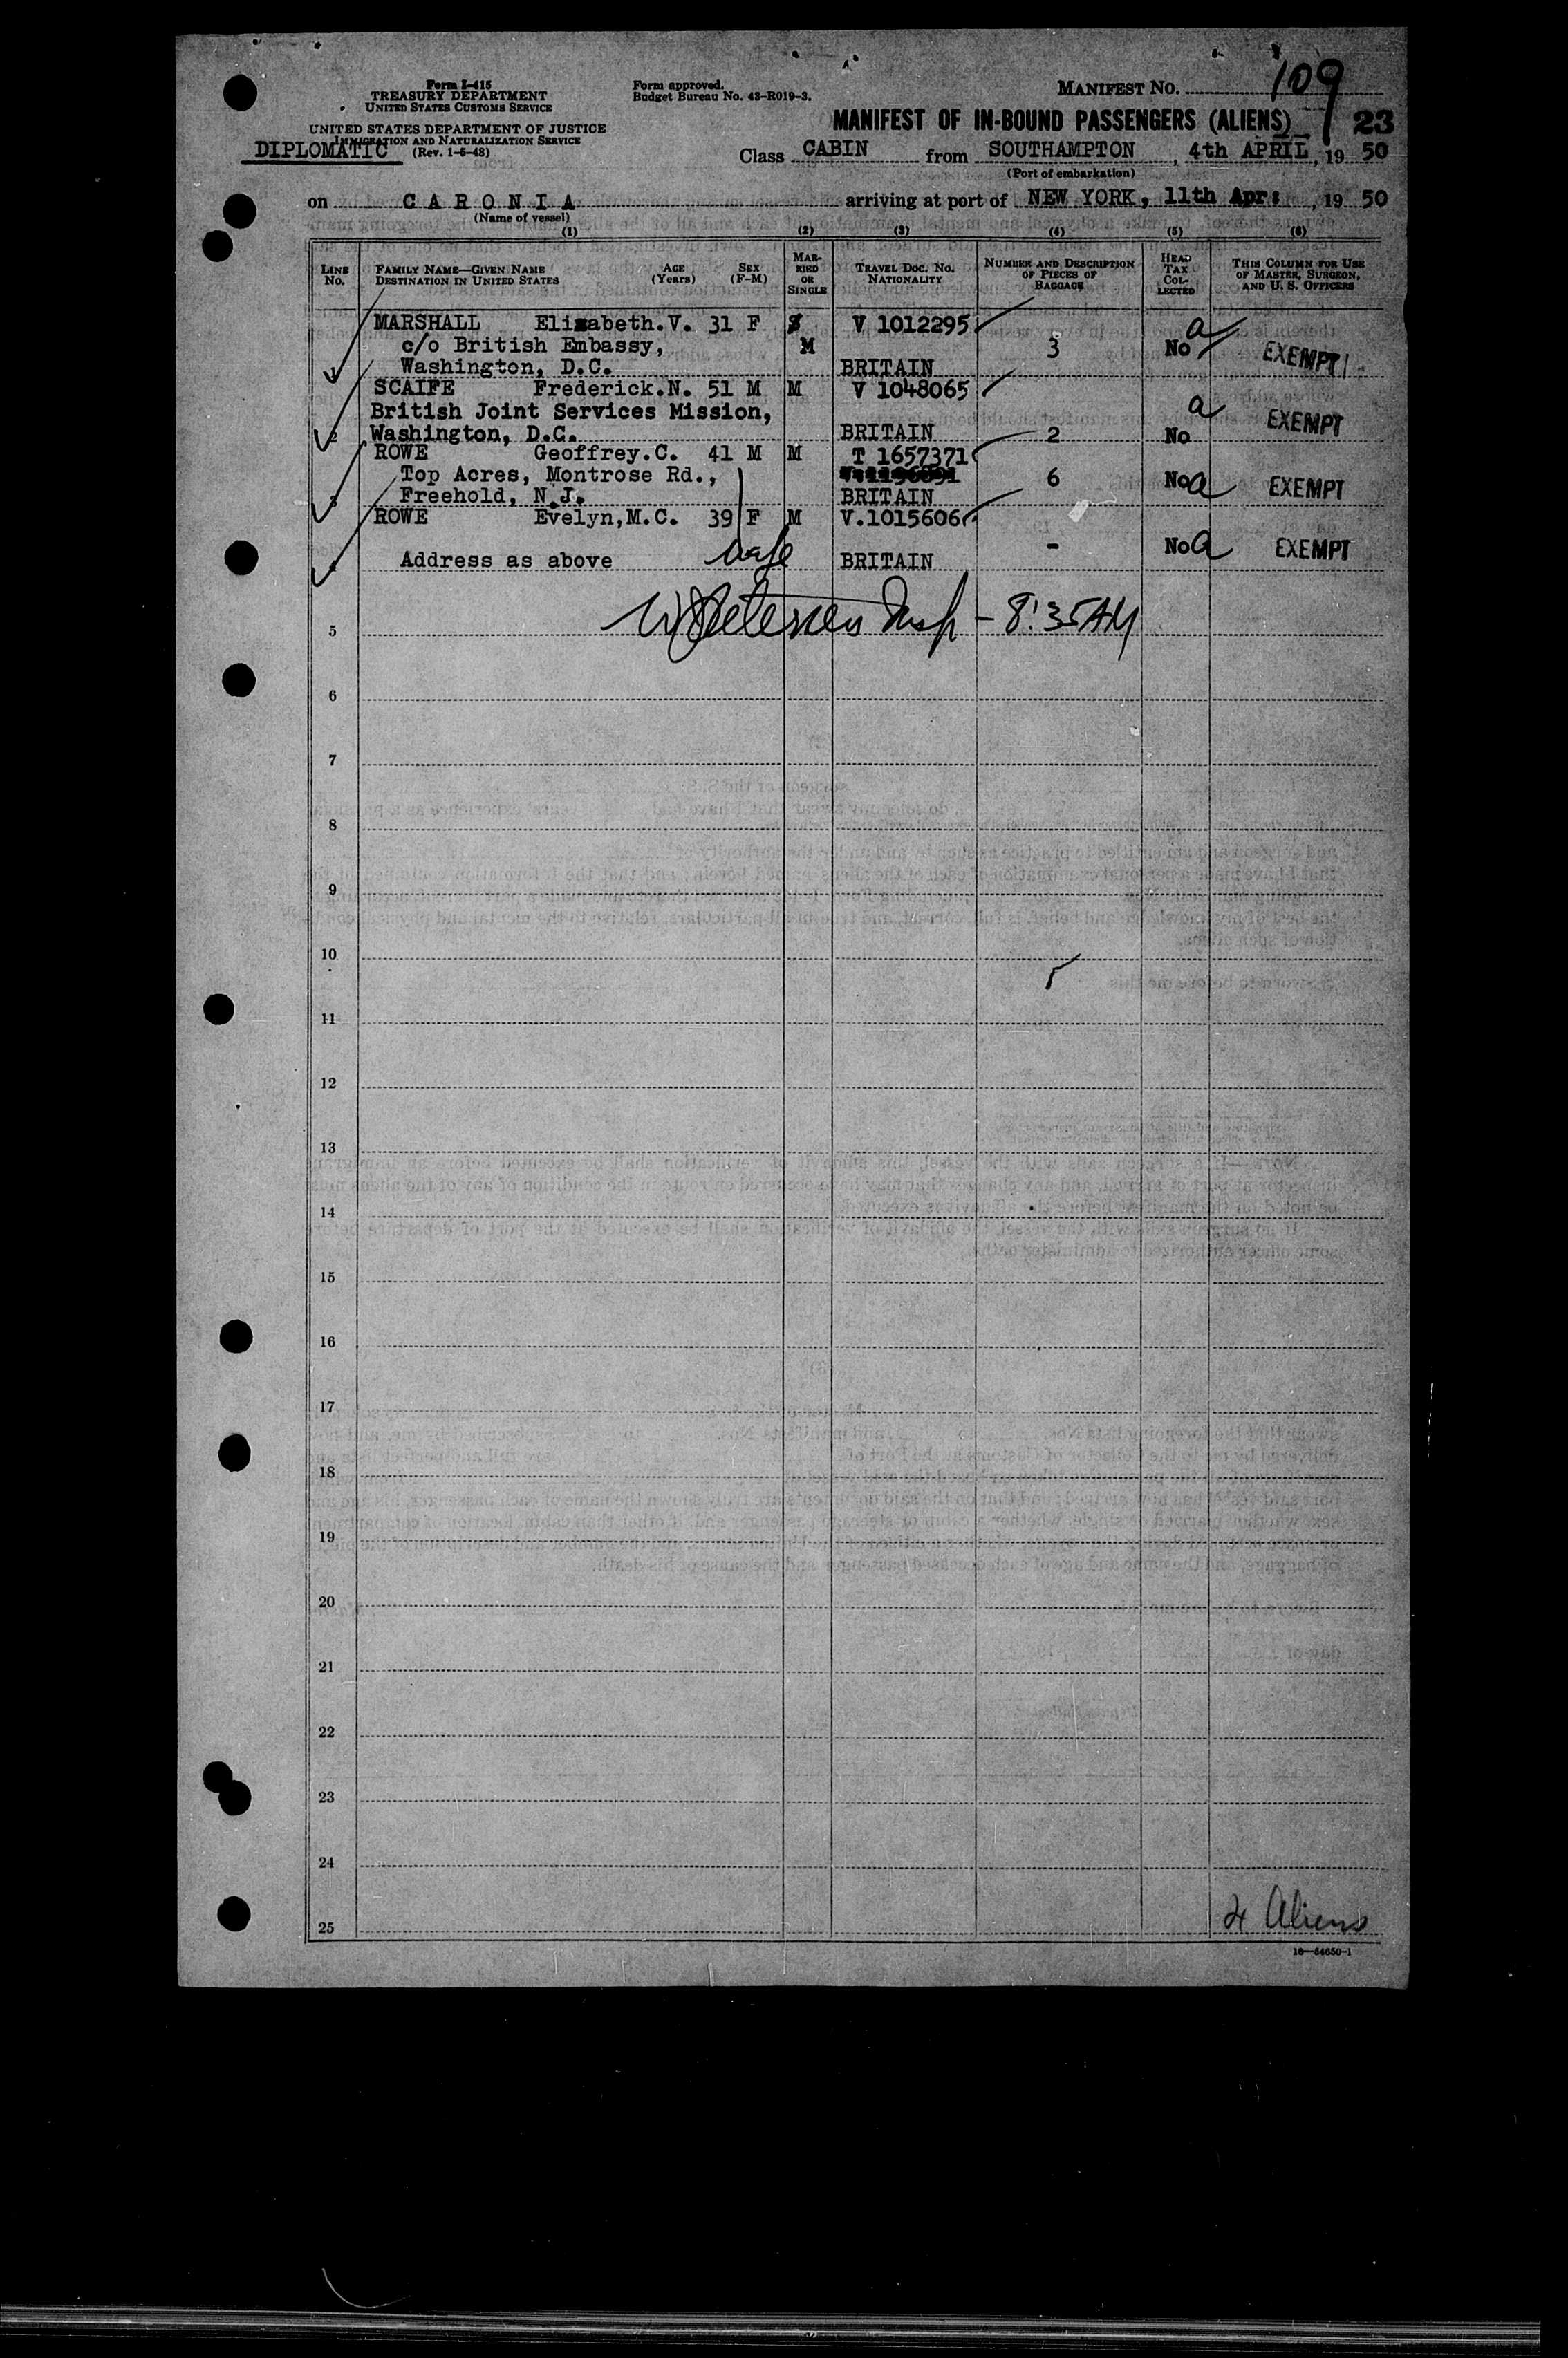 Form I-415
TREASURY DEPARTMENT
UNITED STATES CUSTOMS SERVICE
UNITED STATES DEPARTMENT OF JUSTICE
IMMIGRATION AND NATURALIZATION SERVICE
DIPLOMATIC (Rev. 1-5-48)
Form approved.
Budget Bureau No. 43-R019-3.
MANIFEST No. 109
MANIFEST OF IN-BOUND PASSENGERS (ALIENS) 23
Class CABIN from SOUTHAMPTON, 4th APRIL, 19 50
(Port of embarkation)
on CARONIA arriving at port of NEW YORK, 11th Apr: , 19 50
(Name of vessel)
(1) (2) (3) (4) (5) (6)
LINE No. FAMILY NAME—GIVEN NAME DESTINATION IN UNITED STATES AGE (Years) SEX (F-M) MARRIED OR SINGLE TRAVEL DOC. No. NATIONALITY NUMBER AND DESCRIPTION OF PIECES OF BAGGAGE HEAD TAX COLLECTED THIS COLUMN FOR USE OF MASTER, SURGEON, AND U. S. OFFICERS
MARSHALL Elizabeth.V. 31 F S V 1012295 a
c/o British Embassy, M 3 No EXEMPT
Washington, D.C. BRITAIN
SCAIFE Frederick.N. 51 M M V 1048065
British Joint Services Mission, a EXEMPT
2 Washington, D.C. BRITAIN 2 No
ROWE Geoffrey.C. 41 M M T 1657371
Top Acres, Montrose Rd., 6 No a EXEMPT
3 Freehold, N.J. BRITAIN
ROWE Evelyn,M.C. 39 F M V.1015606
Address as above wife BRITAIN - No a EXEMPT
4
Insp - 8:35AM
5
6
7
8
9
10
11
12
13
14
15
16
17
18
19
20
21
22
23
24
25
4 Aliens
16—54650-1